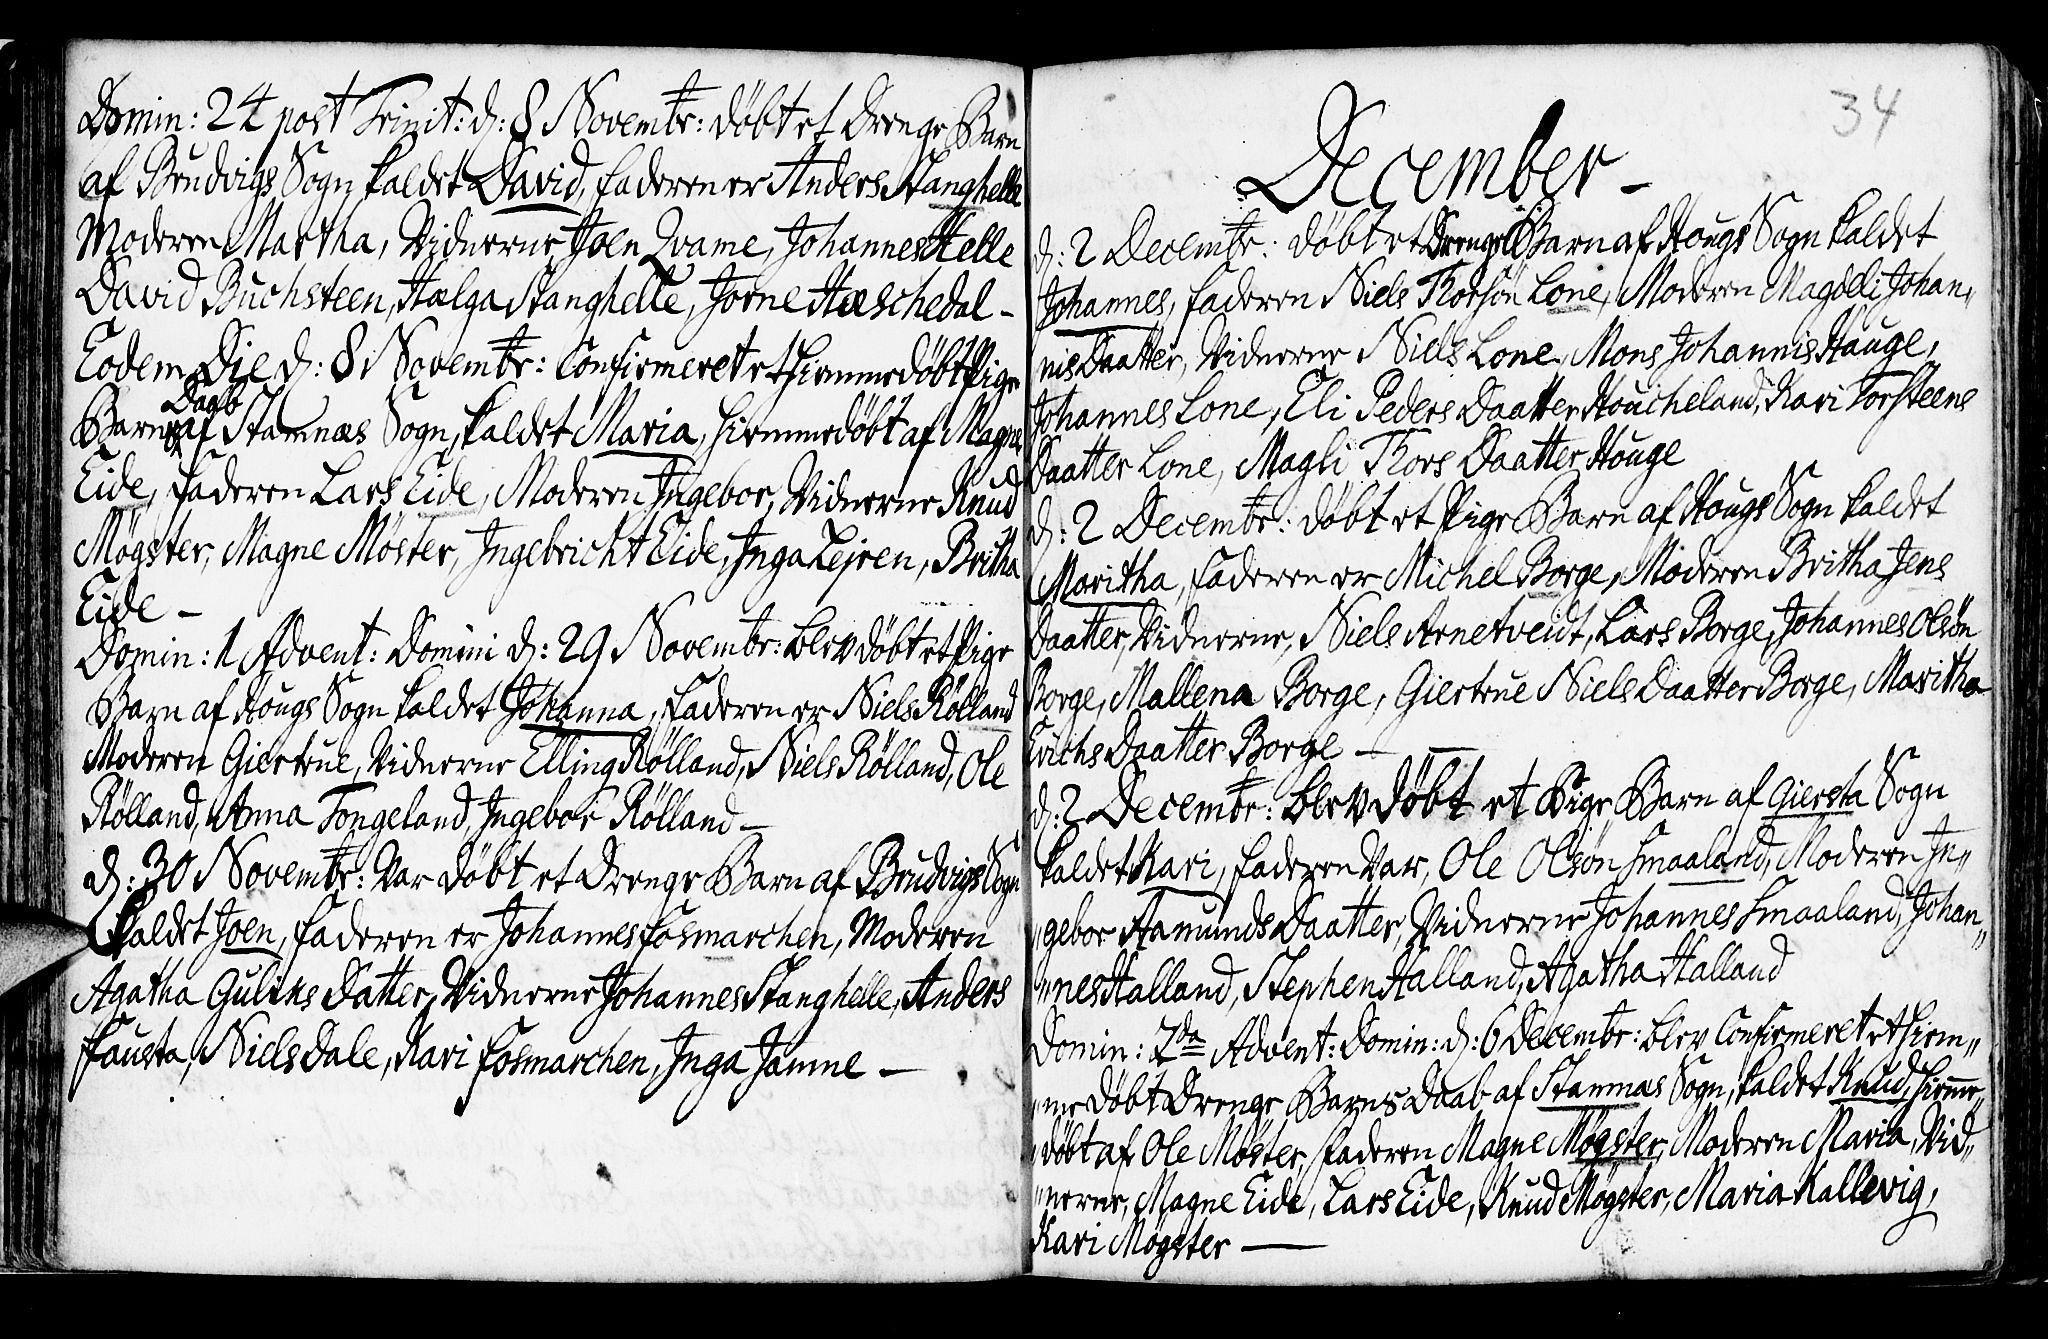 Domin: 24 post Trinit: d: 8 Novembr: døbt et Drenge Barn
af Brudvigs Sogn kaldet David, faderen er Anders Stanghelle
Moderen Martha, Vidnerne Joen Qvame, Johannes Helle
David Buchsteen, Hælga Stanghelle, Jorne Hæschedal -
Eodem Die d: 8 Novembr: Confirmeret et hiemmedøbt Pige
Barns Daab af Stamnæs Sogn, kaldet Maria, hiemmedøbt af Magne
Eide, faderen Lars Eide, Moderen Ingebor, Vidnerne Knud
Møgster, Magne Møster, Ingebricht Eide, Inga Lejren, Britha
Eide -
Domin: 1 Advent: Domini d: 29 Novembr: blev døbt et Pige
Barn af Hougs Sogn kaldet Johanna, faderen er Niels Rølland
Moderen Giertrue, Vidnerne Elling Rølland, Niels Rølland, Ole
Rølland, Anna Tongeland, Ingebor Rølland -
d: 30 Novembr: var døbt et Drenge Barn af Brudvigs Sogn
kaldet Joen, faderen er Johannes fosmarchen, Moderen
Agatha Guliks Datter, Vidnerne Johannes Stanghelle, Anders
fausta, Niels Dale, Kari fosmarchen, Inga Jamne -
34
December -
d: 2 Decembr: døbt et Drenge Barn af Hougs Sogn kaldet
Johannes, faderen Niels Thorsøn Lone, Moderen Magdeli Johan„
nis Daatter, Vidnerne Niels Lone, Mons Johannis Hauge,
Johannes Lone, Eli Peders Daatter Houcheland, Kari Torsteens
Daatter Lone, Magli Thors Daatter Houge
d: 2 Decembr: døbt et Pige Barn af Hougs Sogn kaldet
Maritha, faderen er Michel Borge, Moderen Britha Jens
Daatter, Vidnerne, Niels Arnetveidt, Lars Borge, Johannes Olsøn
Borge, Mallena Borge, Giertrue Niels Daatter Borge, Maritha
Erichs Daatter Borge -
d: 2 Decembr: blev døbt et Pige Barn af Giersta Sogn
kaldet Kari, faderen var, Ole Olsøn Smaaland, Moderen In„
„gebor Hamunds Daatter, Vidnerne Johannes Smaaland, Johan„
„nes Halland, Stephen Halland, Agatha Halland
Domin: 2da Advent: Domin: d: 6 Decembr: blev Confirmeret et hiem„
„me døbt Drenge Barns Daab af Stamnæs Sogn, kaldet Knud, hieme„
„døbt af Ole Møster, faderen Magne Møgster, Moderen Maria, Vid„
„nerne, Magne Eide, Lars Eide, Knud Møgster, Maria Kallevig,
Kari Møgster -